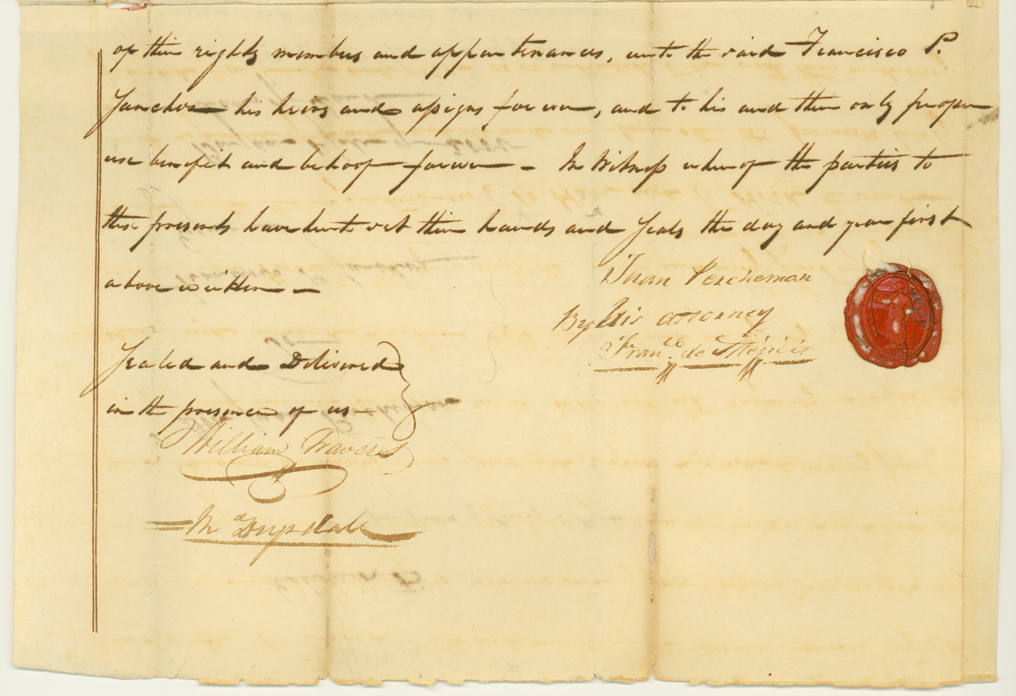 of their rights members and appurtenances, unto the said Francisco P.
Sanchez his heirs and assigns forever, and to his and their only proper
use benefit and behoof forever — In Witness whereof the parties to
these presents have hereunto set their hands and Seals the day and year first
above written —
Juan Percheman
By His attorney
Fran.co de
Sealed and Delivered
in the presence of us —
William Travers
Drysdale